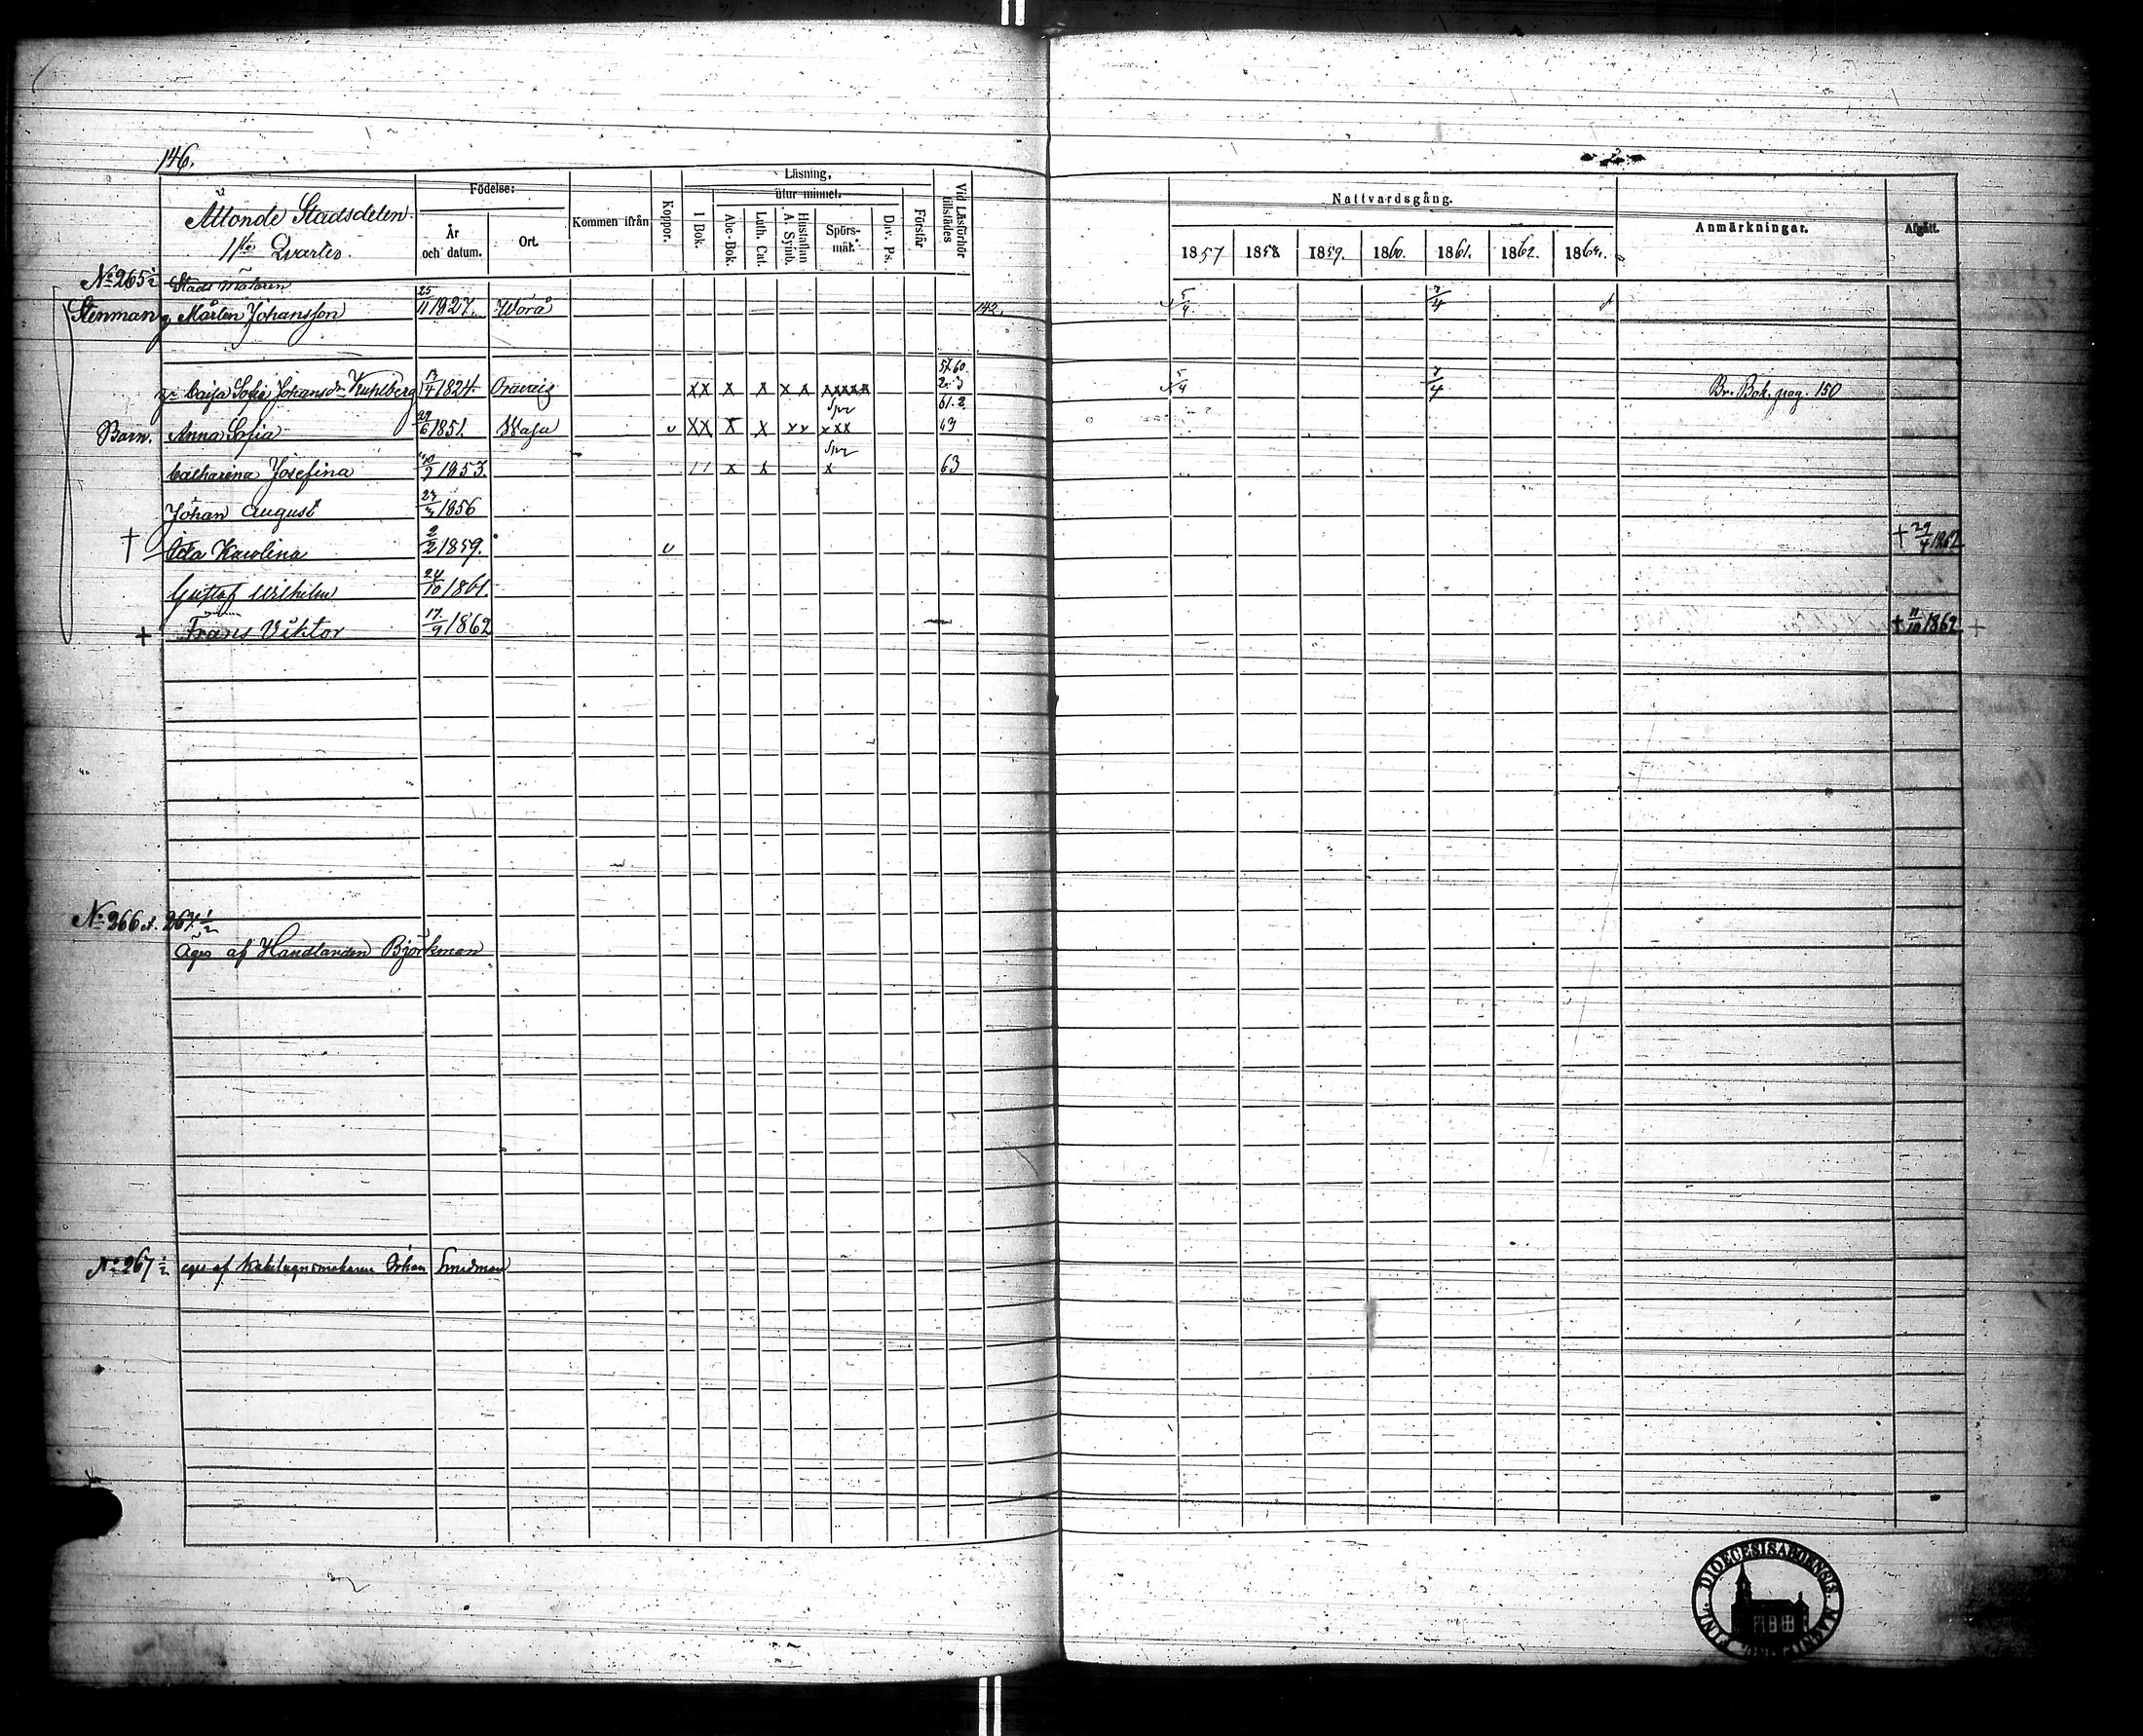 146.
Åttonde Stadsdelen
11te Qvarter.
Födelse:
År och datum.
Ort.
Kommen ifrån
Koppor.
Läsning,
utur minnet.
I Bok.
Abc-Bok.
Luth. Cat.
Hustaflan A. Symb.
Spörsmål.
Dav. Ps.
Förstår
Vid Läsförhör tillstädes
Nattvardsgång.
1857 1858 1859. 1860. 1861. 1862. 1864.
Anmärkningar.
Afgått.
No 265 ½ Stads
Stenman, Mårten Johansson 25/11 1827. Wörå 142. 5/4. 7/4
Caisa Sofia Johansdr 1824. Oravais XX X X X X XXXXX 57.60 61.2. 5/4 7/4 Br. Bok. pag. 150
Barn. Anna Sofia 29/6 1851. Wasa v XX X X XX Spr XXX 63
Catharina Josefina 1853. 11 X X Spr X 63
Johan August 1856
† Ida Karolina 2/2 1859. v † 29/4 1862
Gustaf Wilhelm 24/10 1861.
† Frans Viktor 17/9 1862 † 11/10 1862 †
No 266 et. 267 ½
Äges af Handlanden Björkman
No 267 ½ eges af Kakelugnsmakaren Johan Smedman
FINL. DIOECESIS ABOENSIS